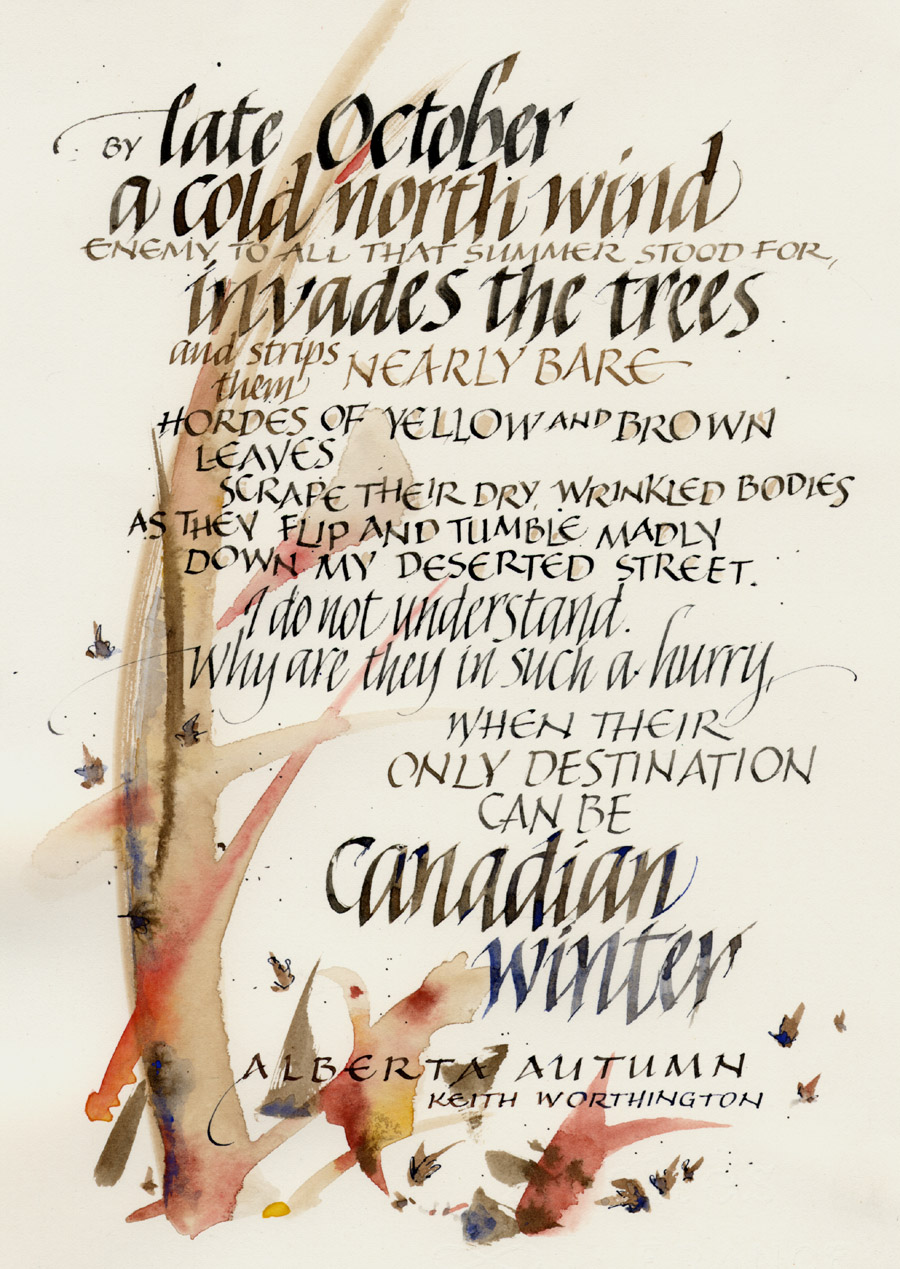 BY late October
a cold north wind
ENEMY TO ALL THAT SUMMER STOOD FOR,
invades the trees
and strips
them NEARLY BARE
HORDES OF YELLOW AND BROWN
LEAVES
SCRAPE THEIR DRY, WRINKLED BODIES
AS THEY FLIP AND TUMBLE MADLY
DOWN MY DESERTED STREET.
I do not understand.
Why are they in such a hurry,
WHEN THEIR
ONLY DESTINATION
CAN BE
Canadian
winter
ALBERTA AUTUMN
KEITH WORTHINGTON